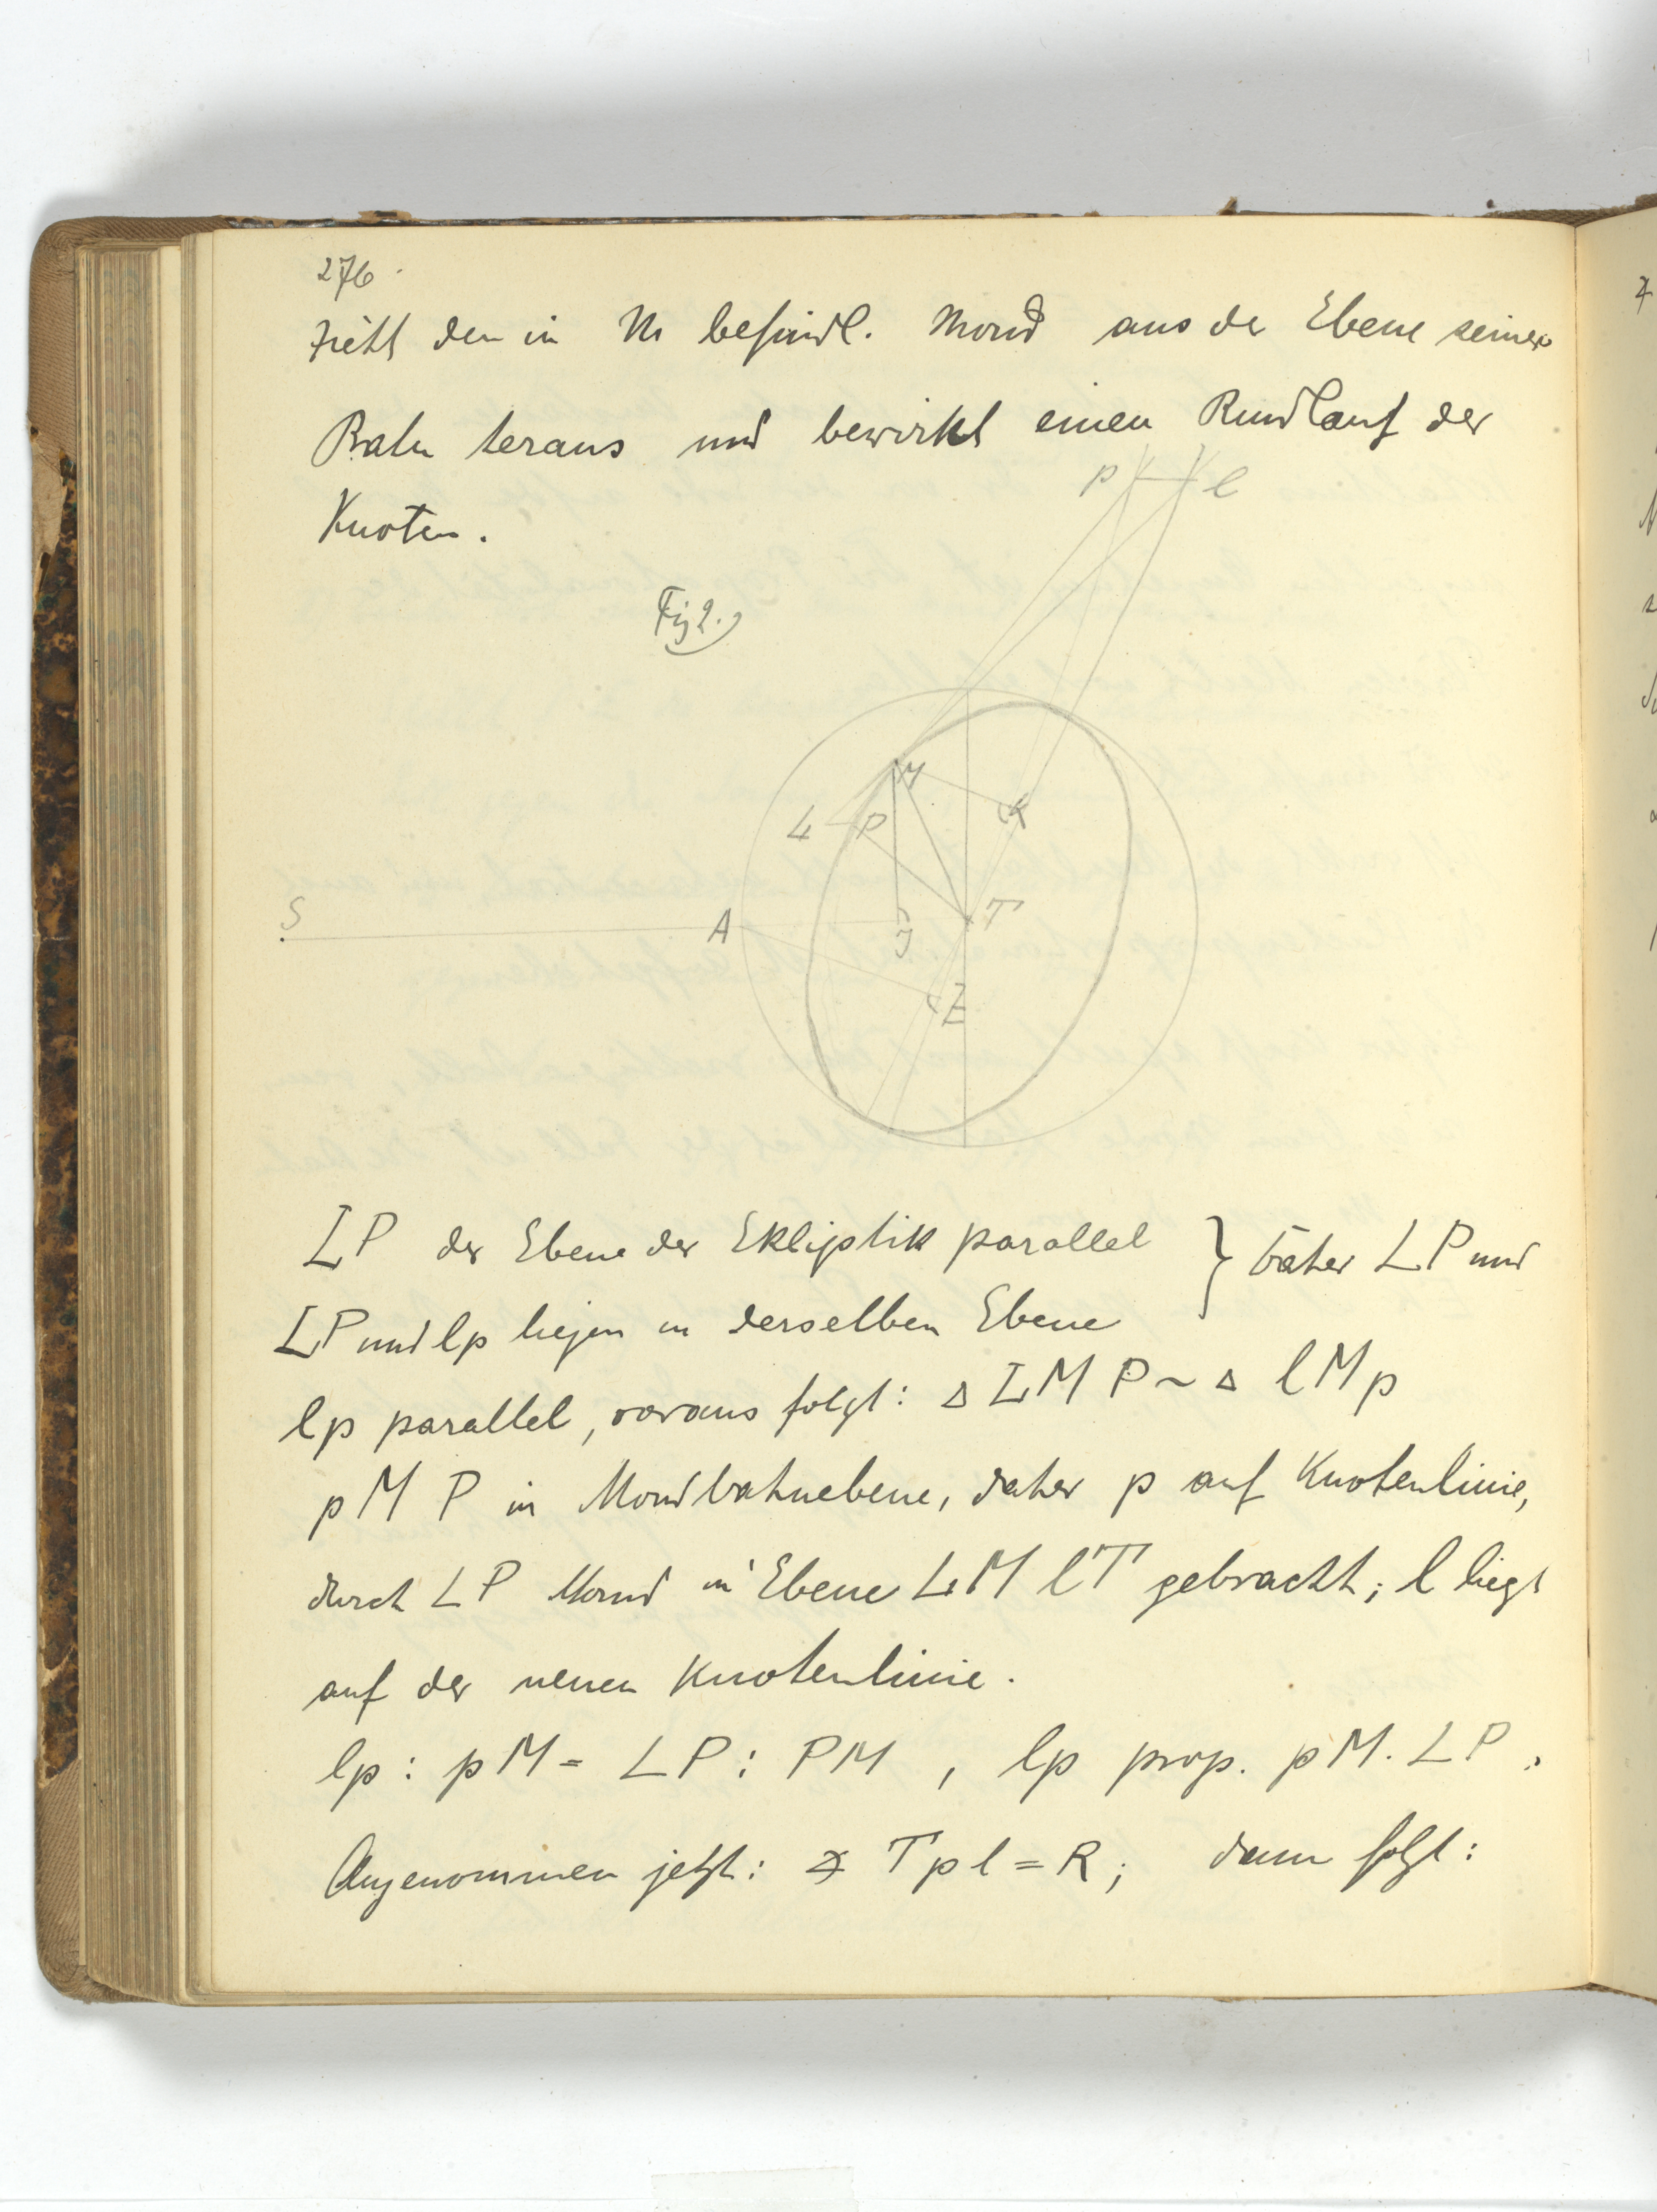 276.
zieht den in M befindl. Mond aus der Ebene seiner
Bahn heraus und bewirkt einen Rundlauf der
Knoten.
p l
Fig 2.)
M
L P K
S A J T
E
LP der Ebene der Ekliptik parallel } daher LP und
LP und lp liegen in derselben Ebene
lp parallel, daraus folgt: △ LMP ~ △ lMp
pMP in Mondbahnebene, daher p auf Knotenlinie,
durch LP Mond in Ebene LMlT gebracht; l liegt
auf der neuen Knotenlinie.
lp : pM = LP : PM , lp prop. pM. LP.
Angenommen jetzt: ∢ Tpl = R; dann folgt: